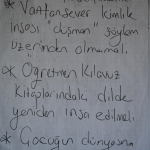 * Vatansever kimlik
inşası "düşman" söylem
üzerinden olmamalı.
* Öğretmen Kılavuz
kitaplarındaki dilde
yeniden inşa edilmeli
* Çocuğun dünyasına